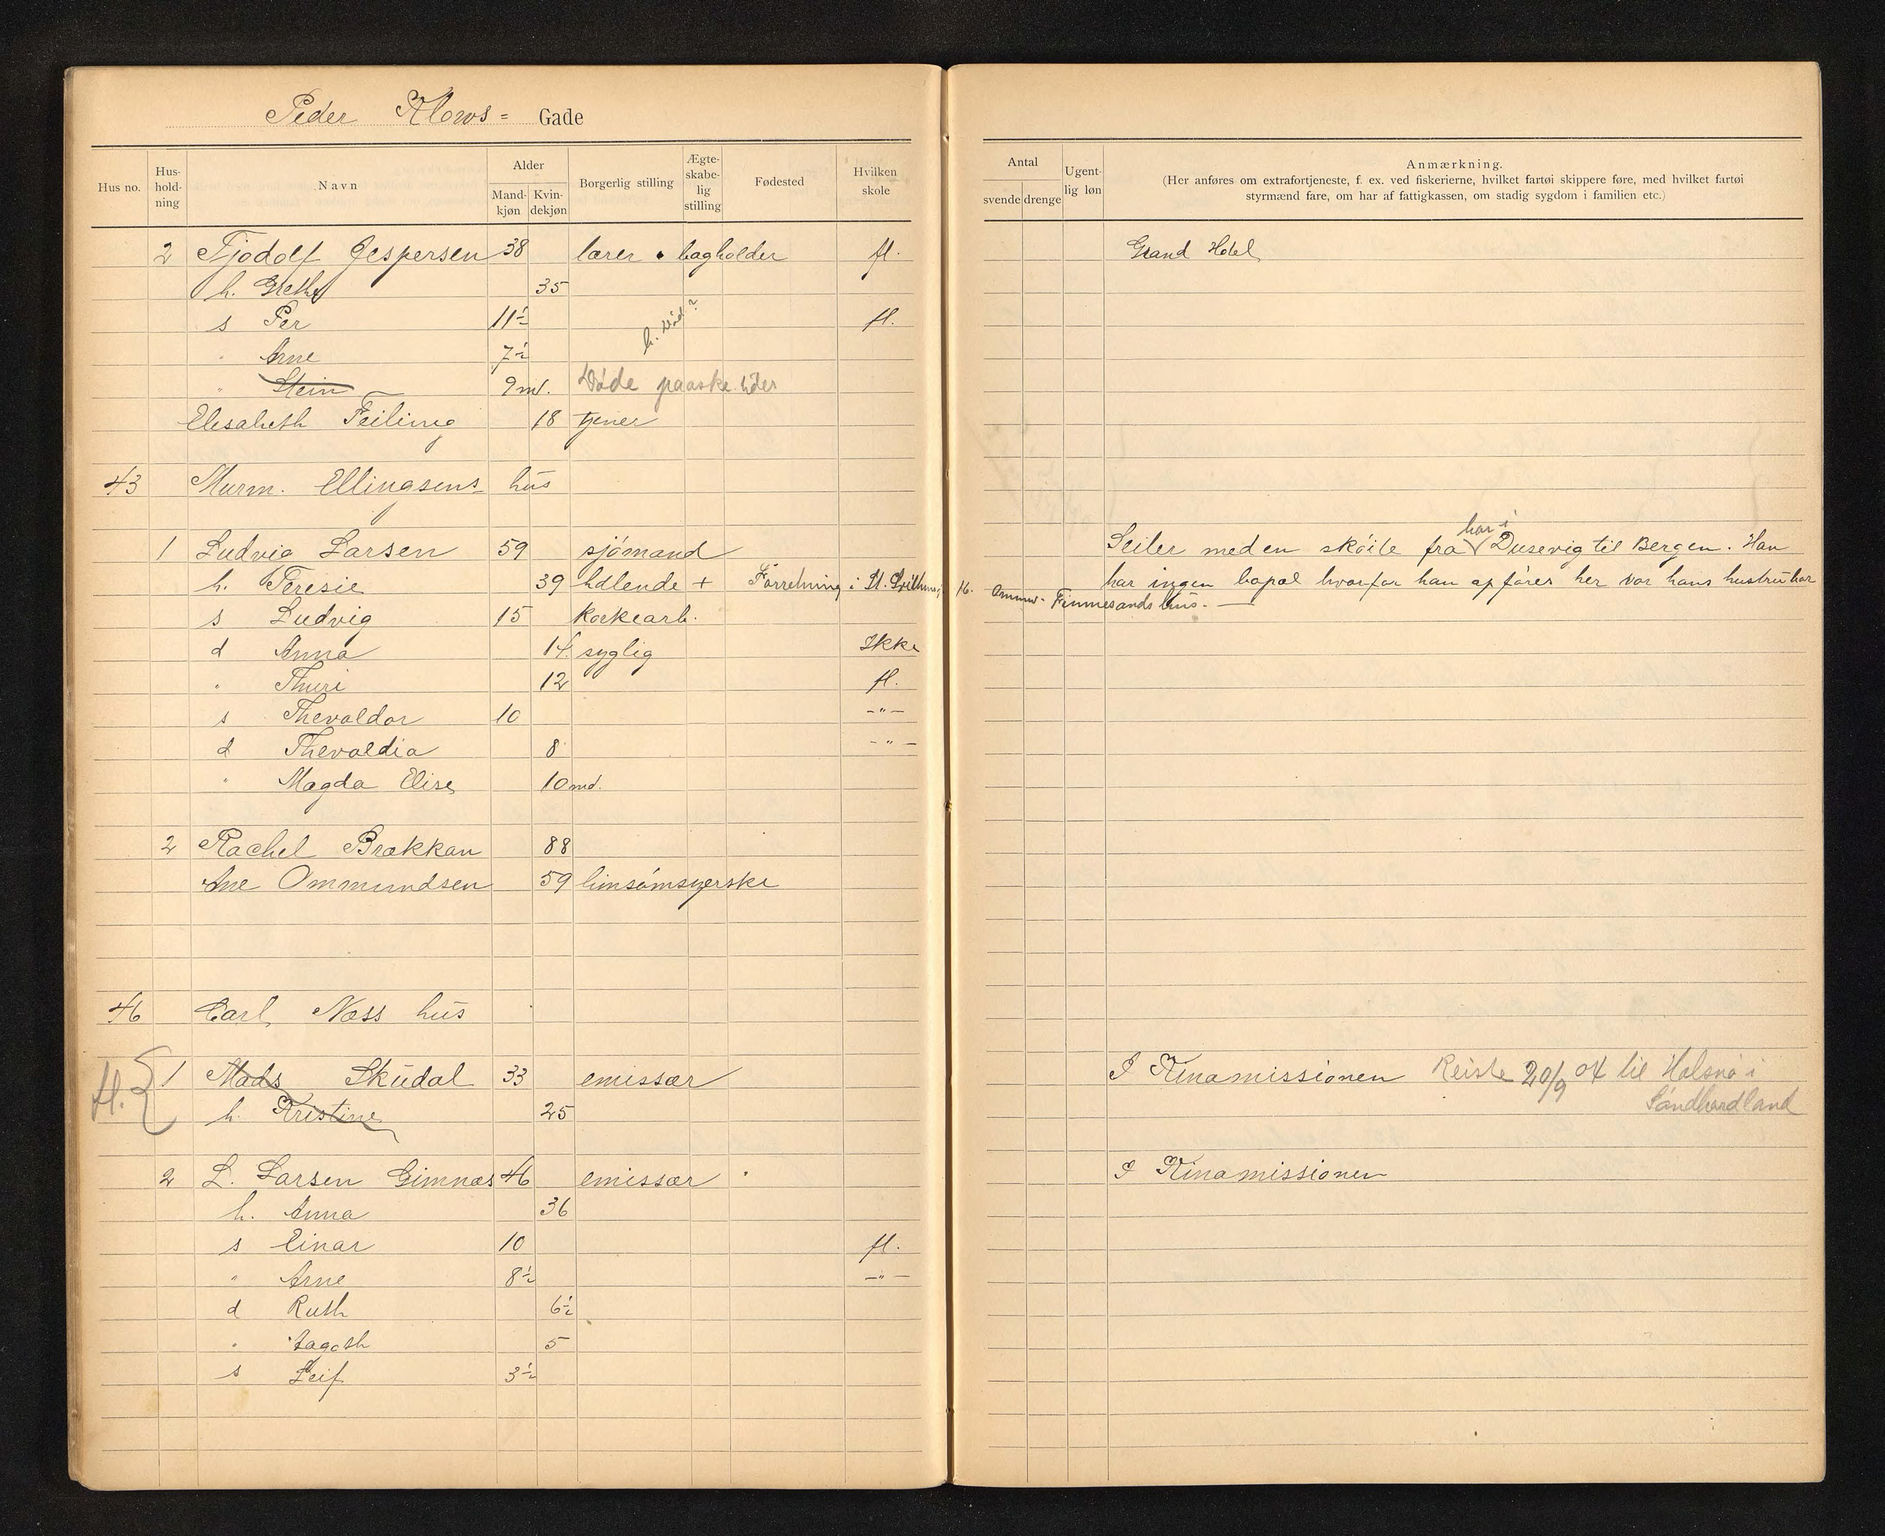 Peder Klows= Gade
Hus no. Hus-hold-ning Navn Alder Mand-kjøn Kvin-dekjøn Borgerlig stilling Ægte-skabe-lig stilling Fødested Hvilken skole
2 Tjodolf Jespersen 38 lærer • bogholder fl.
h. Grethe 35
s Per 11½ fl.
" Arne 7½
h. død?
" Stein 9 md. Døde paaske tider
Elisabeth Feiling 18 tjener
43 Murm. Ellingsens hus
1 Ludvig Larsen 59 sjömand
h. Teresie 39 hdlende + Forretning i St. Svithuns 16. Ommu- Finnesands hus. —
s Ludvig 15 korkearb.
d Anna 14. syglig Ikke
" Thuri 12 fl.
s Thevaldor 10 -"-
d Thevaldia 8 -"-
" Magda Elise 10 md.
2 Rachel Brækkan 88
Ane Ommundsen 59 limsömsyerske
46 Carl Næss hus
H. 1 Mads Skudal 33 emissær
h. Kristine 25
2 L. Larsen Gimnæs 46 emissær
h. Anna 36
s Einar 10 fl.
" Arne 8½ -"-
d Ruth 6½
" Aagoth 5
s Leif 3½
Antal svende drenge Ugent-lig løn Anmærkning.
(Her anføres om extrafortjeneste, f. ex. ved fiskerierne, hvilket fartøi skippere føre, med hvilket fartøi
styrmænd fare, om har af fattigkassen, om stadig sygdom i familien etc.)
Grand Hotel
Seiler med en sköite fra har i Dusevig til Bergen. Han
har ingen bopæl hvorfor han opförer her vor hans hustru bor
I Kinamissionen Reiste 20/9 04 til Halsnø i
Söndhordland
I Kinamissionen